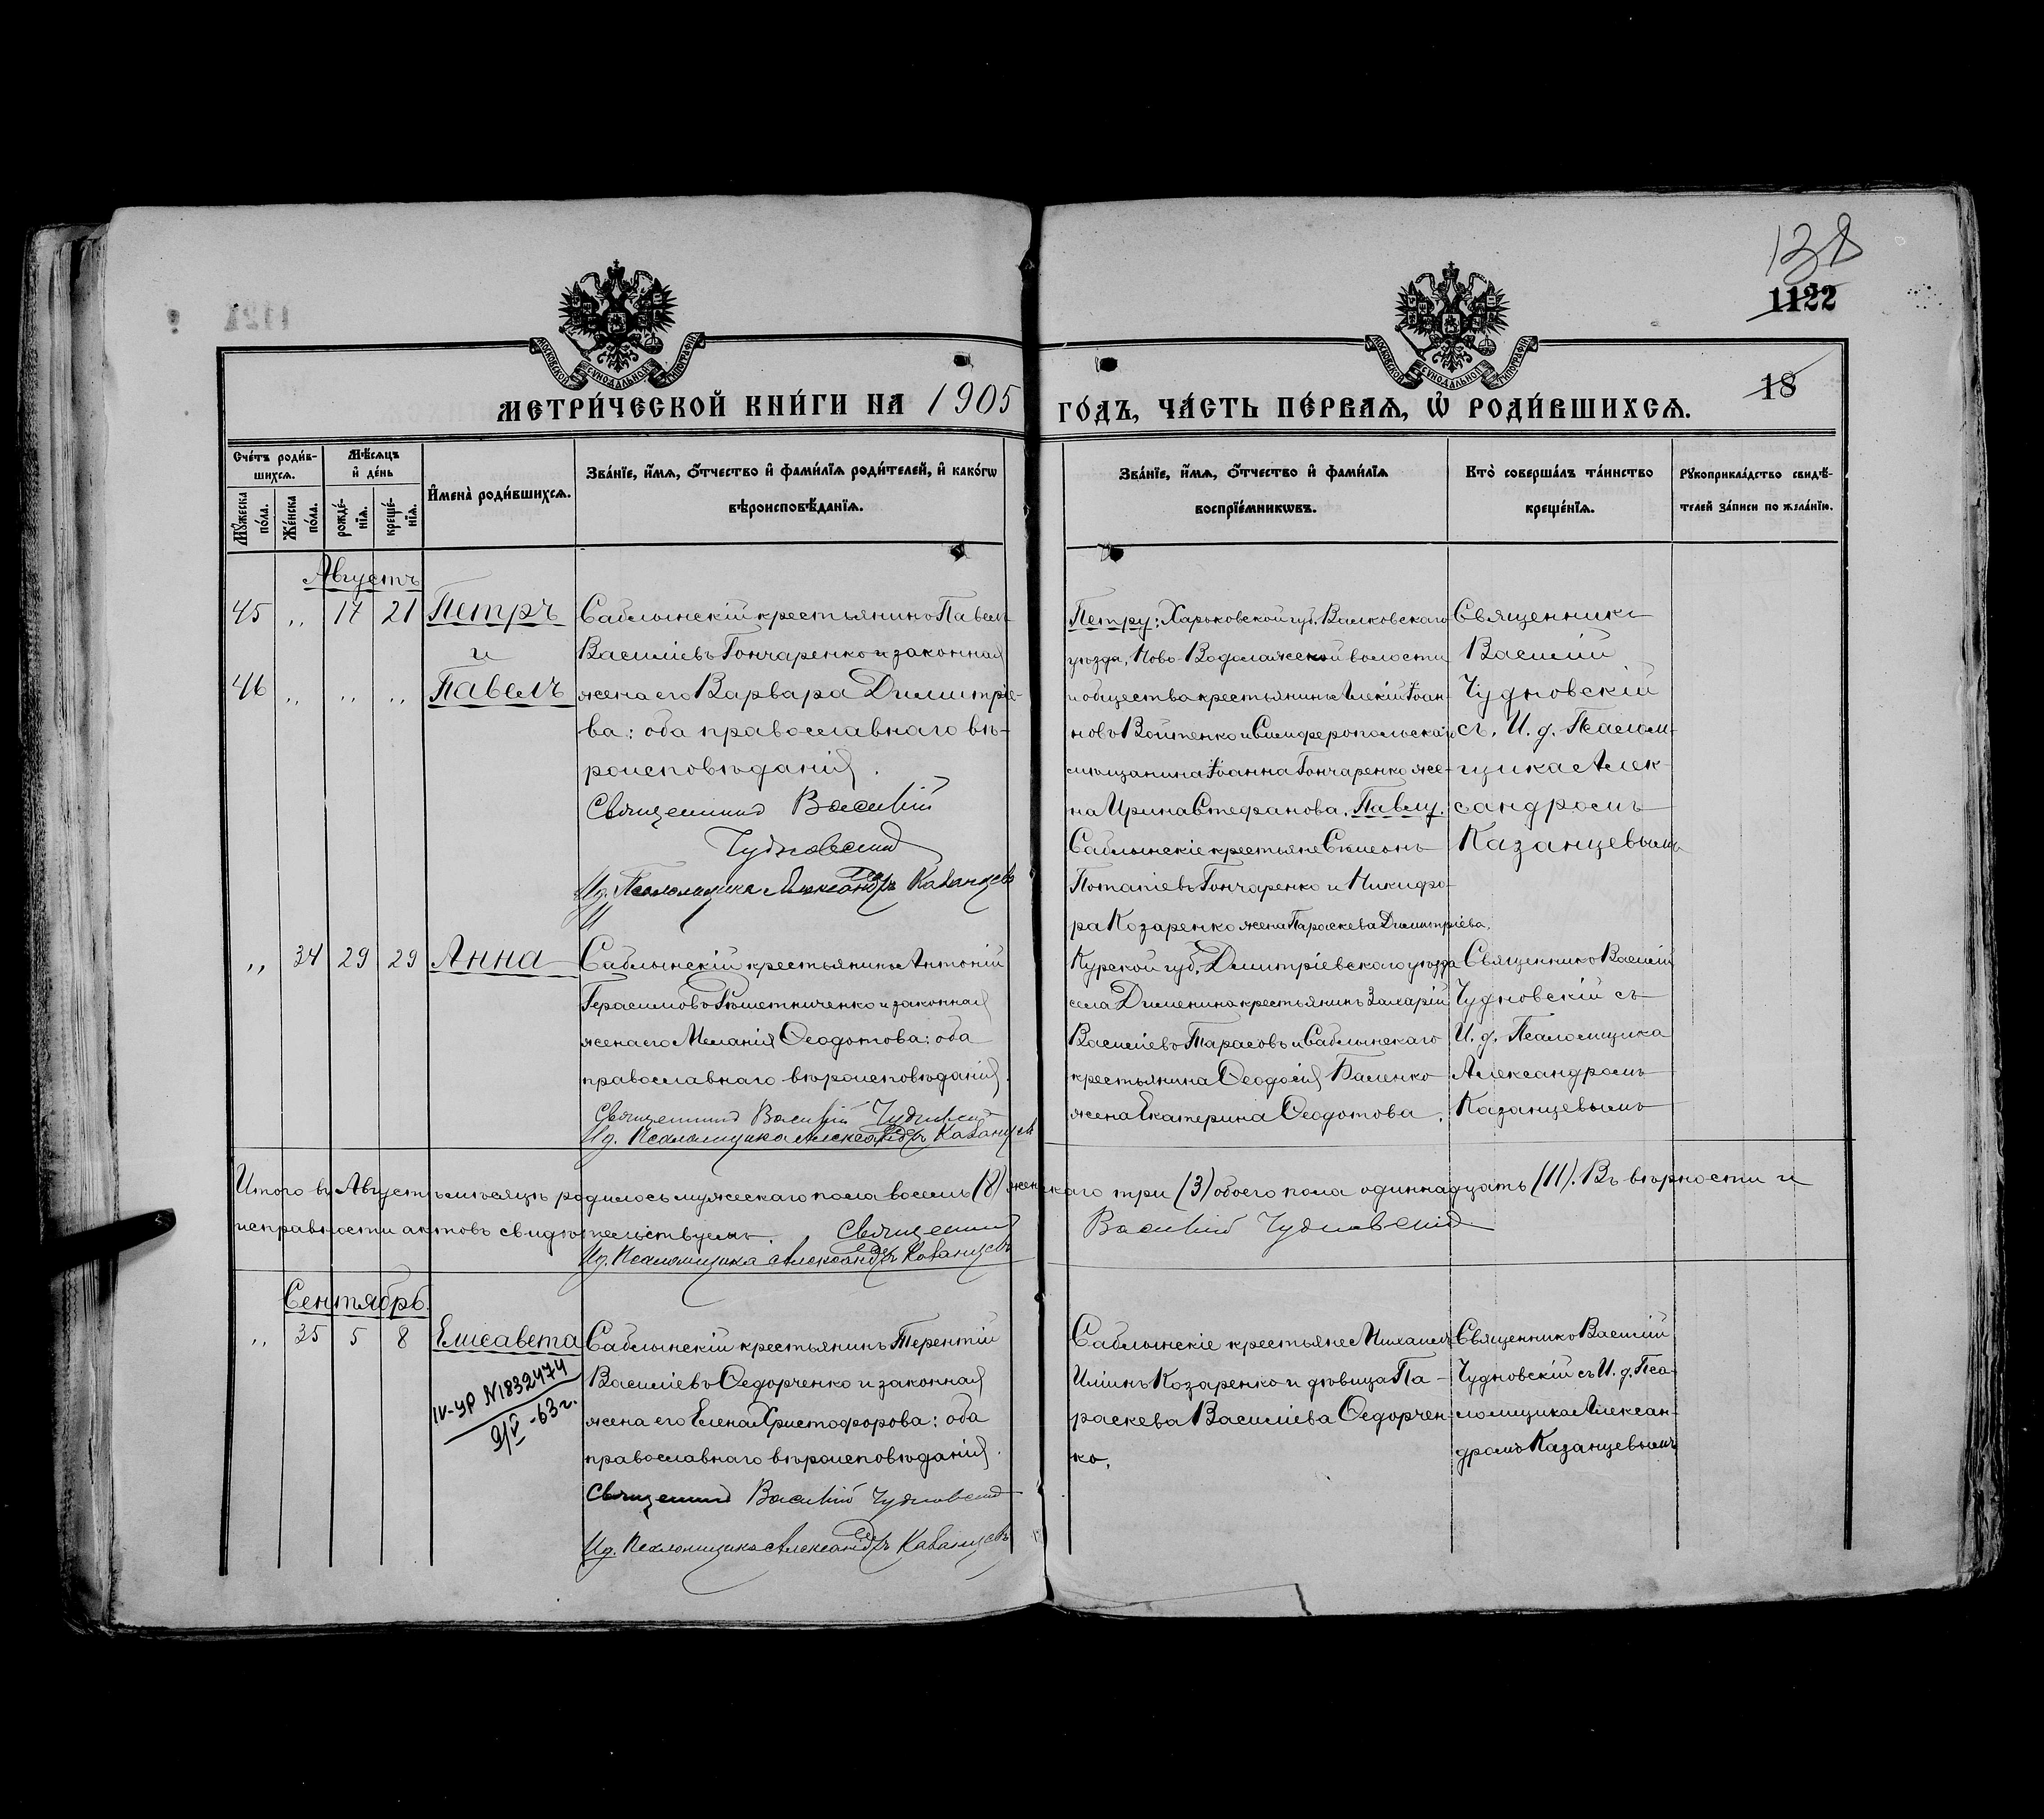 138
1122
18
МОСКОВСКОЙ СѴНОДАЛЬНОЙ ТИПОГРАФІИ
МОСКОВСКОЙ СѴНОДАЛЬНОЙ ТИПОГРАФІИ
МЕТРИ́ЧЕСКОЙ КНИ́ГИ НА 1905 ГО́ДЪ, ЧА́СТЬ ПЕ́РВАѦ, Ѡ҆ РОДИ́ВШИХСѦ.
Сче́тъ роди́в-
шихсѧ.
Мѣ́сѧцъ
и҆ де́нь
Мꙋ́жеска по́ла.
Же́нска по́ла.
рожде́-
нїѧ.
креще́-
нїѧ.
И҆мена̀ роди́вшихсѧ.
Зва́нїе, и҆́мѧ, ѻ҆́тчество и҆ фами́лїѧ роди́телей, и҆ како́гѡ
вѣроисповѣ́данїѧ.
Зва́нїе, и҆́мѧ, ѻ҆́тчество и҆ фами́лїѧ
воспрїе́мникѡвъ.
Кто̀ соверша́лъ та́инство
креще́нїѧ.
Рꙋкоприкла́дство свидѣ́-
телей за́писи по жела́нїю.
Августъ
45 ,, 17 21 Петръ
и
46 ,, ,, ,, Павелъ
Саблынскій крестьянинъ Павелъ
Василіевъ Гончаренко и законная
жена его Варвара Димитріе-
ва: оба православнаго вѣ-
роисповѣданія.
Священникъ Василій
Чудновскій
И.д. Псаломщика Александръ Казанцевъ
Петру: Харьковской губ. Валковскаго
уѣзда, Ново-Водолажской волости
и общества крестьянинъ Алексій Іоан-
новъ Войтенко и Симферопольскаго
мѣщанина Іоанна Гончаренко же-
на Ирина Стефанова. Павлу.
Саблынскіе крестьяне Симеонъ
Потапіевъ Гончаренко и Никифо-
ра Козаренко жена Параскева Димитріева.
Священникъ
Василій
Чудновскій
съ И. д. Псалом-
щика Алек-
сандромъ
Казанцевымъ
,, 34 29 29 Анна
Саблынскій крестьянинъ Антоній
Герасимовъ Рѣшетниченко и законная
жена его Меланія Ѳеодотова: оба
православнаго вѣроисповѣданія.
Священникъ Василій Чудновскій
И.д. Псаломщика Александръ Казанцевъ
Курской губ. Дмитріевскаго уѣзда
села Дименина крестьянинъ Захарій
Василіевъ Тарасовъ и Саблынскаго
крестьянина Ѳеодосія Баленко
жена Екатерина Ѳеодотова.
Священникъ Василій
Чудновскій съ
И. д. Псаломщика
Александромъ
Казанцевымъ
Итого въ Августѣ мѣсяцѣ родилось мужескаго пола восемь (8) женскаго три (3) обоего пола одиннадцать (11). Въ вѣрности и
исправности актовъ свидѣтельствуемъ. Священникъ Василій Чудновскій
И.д. Псаломщика Александръ Казанцевъ
Сентябрь.
,, 35 5 8 Елисавета
IV-УР N1832474
9/V -63 г.
Саблынскій крестьянинъ Терентій
Василіевъ Ѳедорченко и законная
жена его Елена Христофорова: оба
православнаго вѣроисповѣданія.
Священникъ Василій Чудновскій
И.д. Псаломщика Александръ Казанцевъ
Саблынскіе крестьяне Михаилъ
Иліинъ Козаренко и дѣвица Па-
раскева Василіева Ѳедорчен-
ко.
Священникъ Василій
Чудновскій съ И. д. Пса-
ломщика Алексан-
дромъ Казанцевымъ